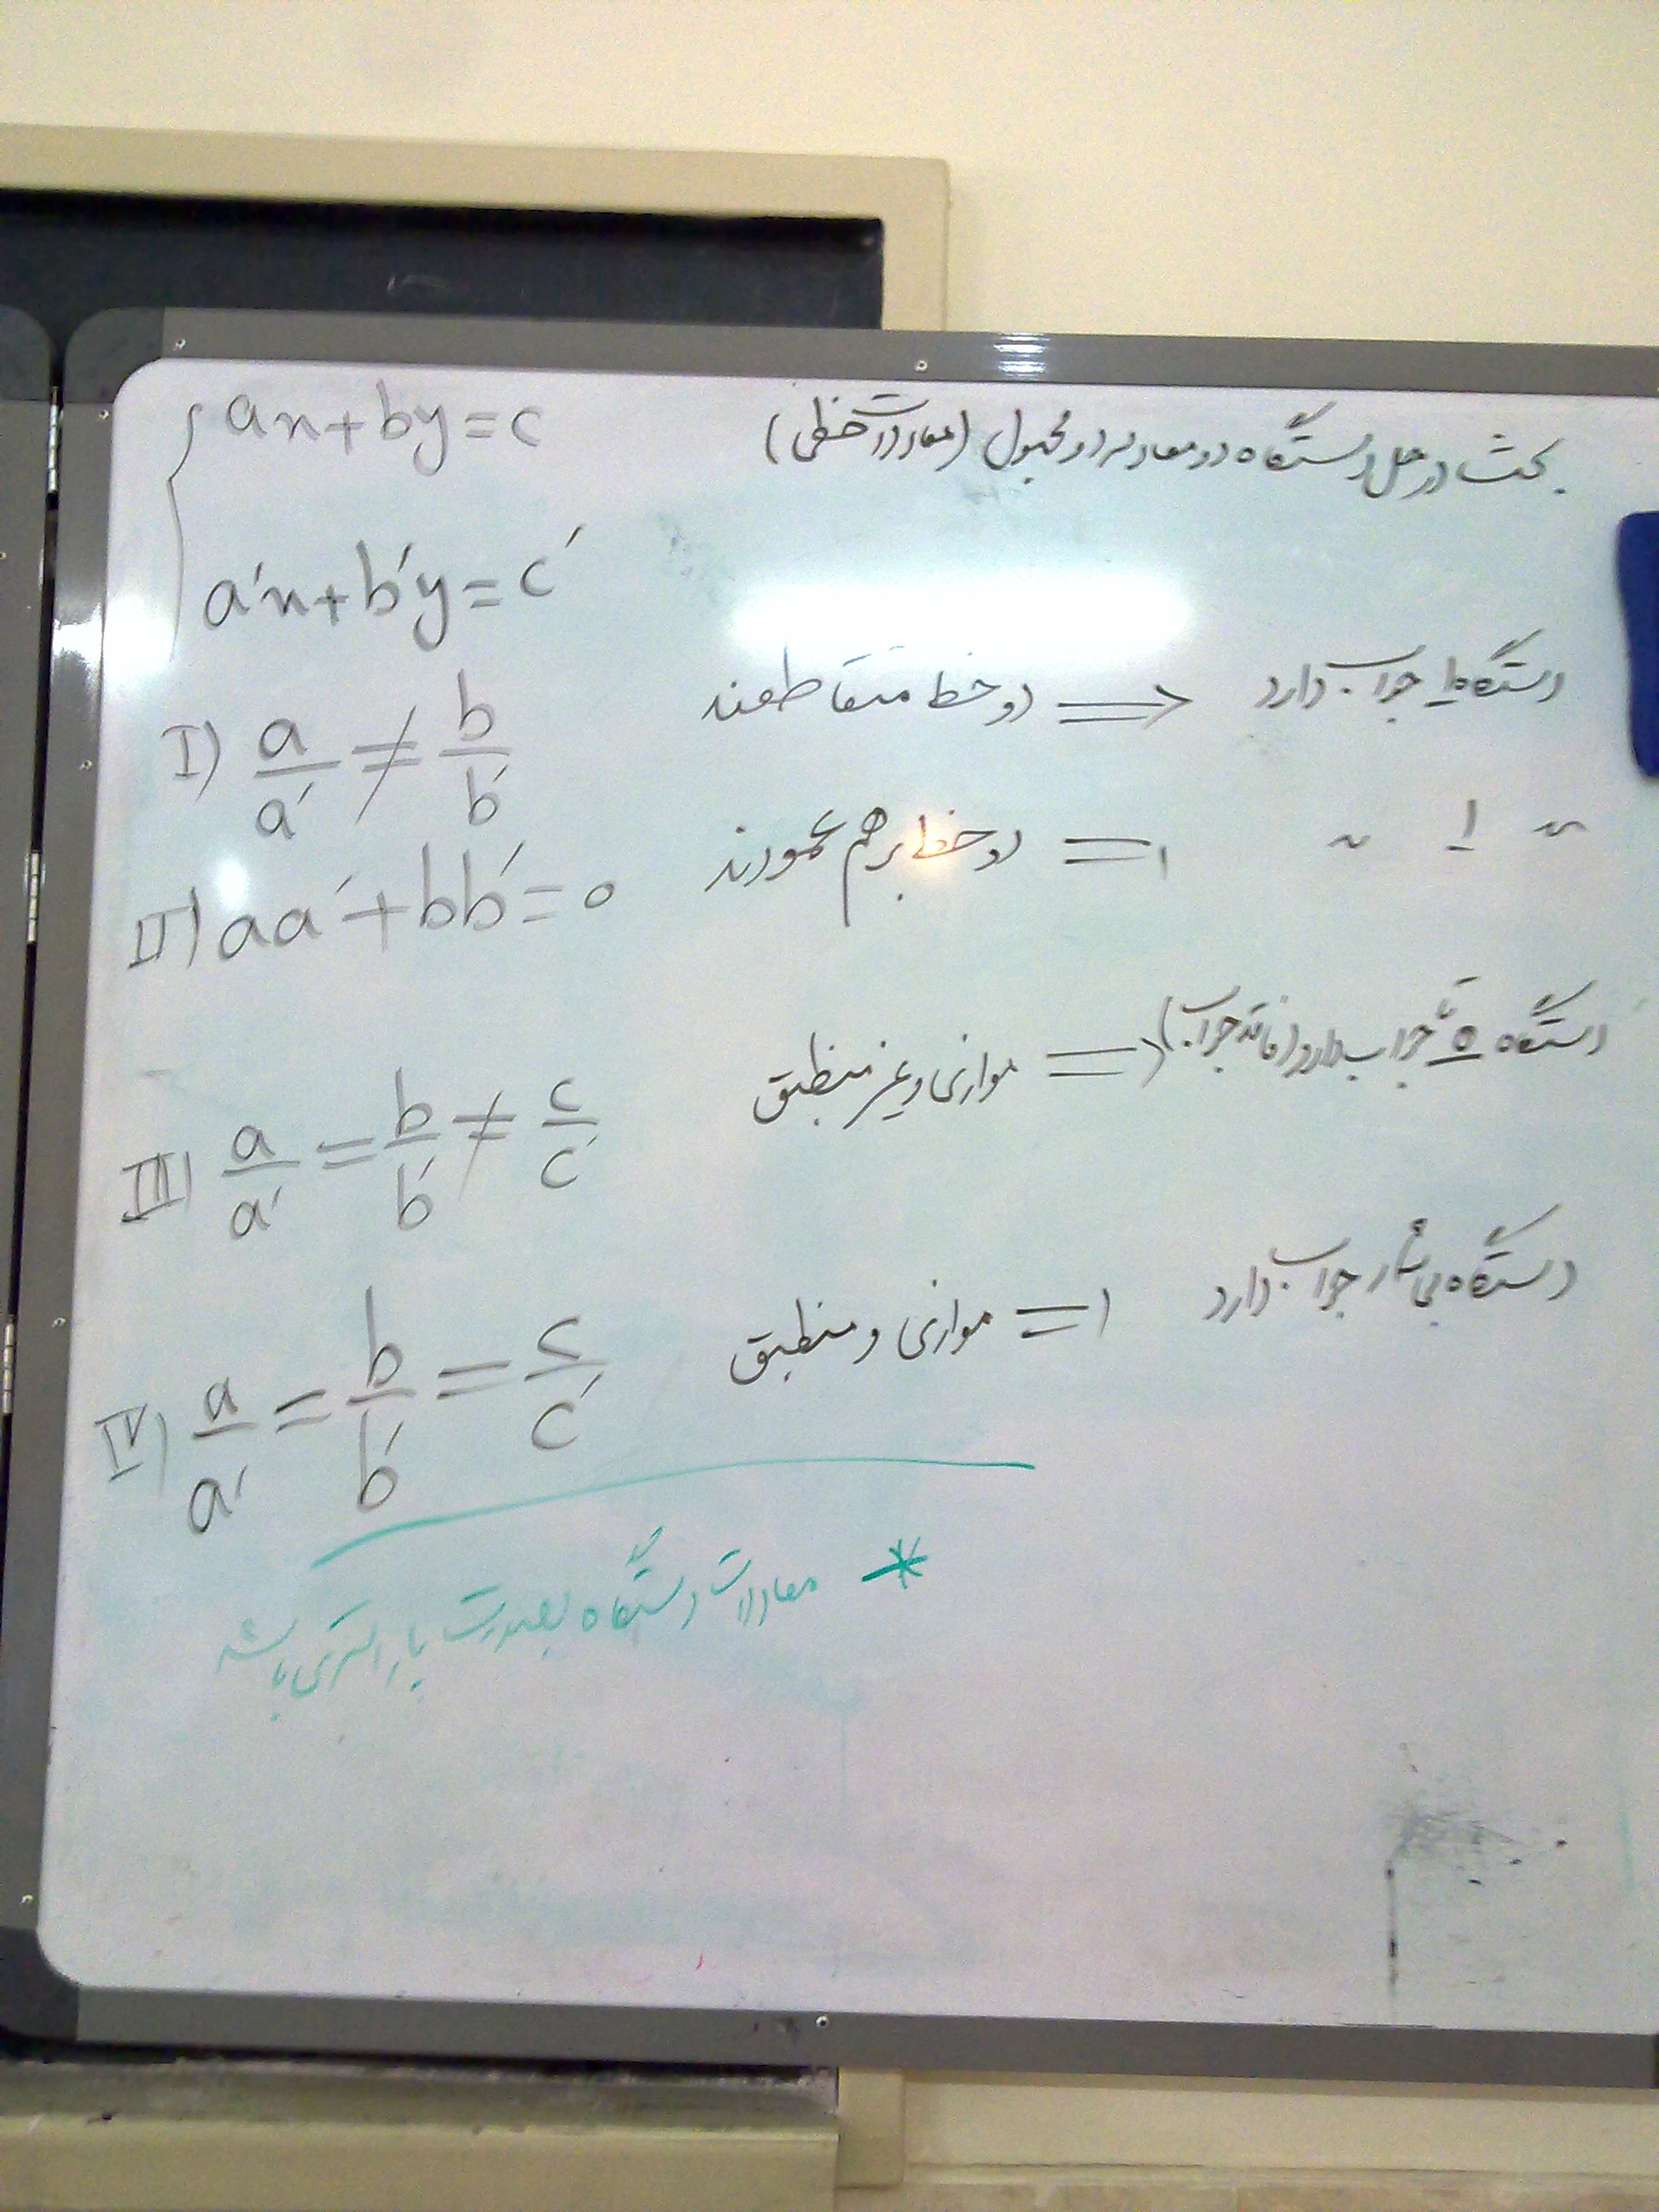 بحث در حل دستگاه دو معادله دو مجهول (معادلات خطی)
{ax+by=c
a′x+b′y=c′
I) a/a′ ≠ b/b′ دو خط متقاطعند ⇒ دستگاه 1 جواب دارد
II) aa′+bb′=0 دو خط برهم عمودند ⇒ ~ 1 ~
III) a/a′ = b/b′ ≠ c/c′ موازی و غیر منطبق ⇒ دستگاه 0 تا جواب دارد (فاقد جواب)
IV) a/a′ = b/b′ = c/c′ موازی و منطبق ⇒ دستگاه بی شمار جواب دارد
* معادلات دستگاه بصورت پارامتری باشد